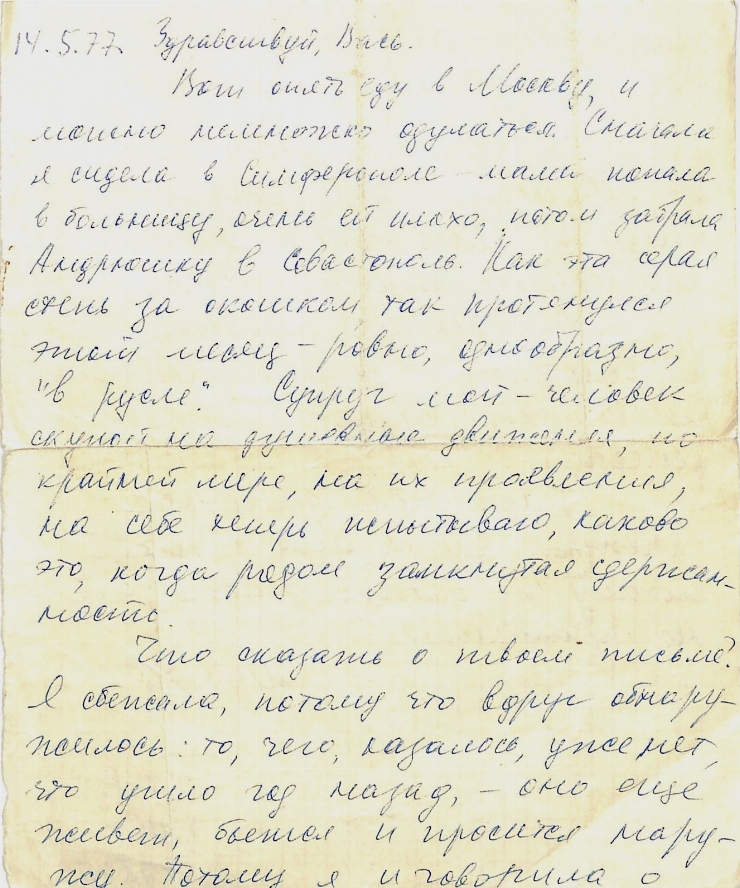 14.5.77. Здравствуй, Вась.
Вот опять еду в Москву, и
можно немножко одуматься. Сначала
я сидела в Симферополе – мама попала
в больницу, очень ей плохо, потом забрала
Андрюшку в Севастополь. Как эта серая
степь за окошком так протянулся
этот месяц – ровно, однообразно,
"в русле". Супруг мой – человек
скупой на душевные движения, по
крайней мере, на их проявления,
на себе теперь испытываю, каково
это, когда рядом замкнутая сдержан-
ность.
Что сказать о твоем письме?
Я сбежала, потому что вдруг обнару-
жилось: то, чего, казалось, уже нет,
что ушло год назад, – оно еще
живет, бьется и просится нару-
жу. Потому я и говорила о